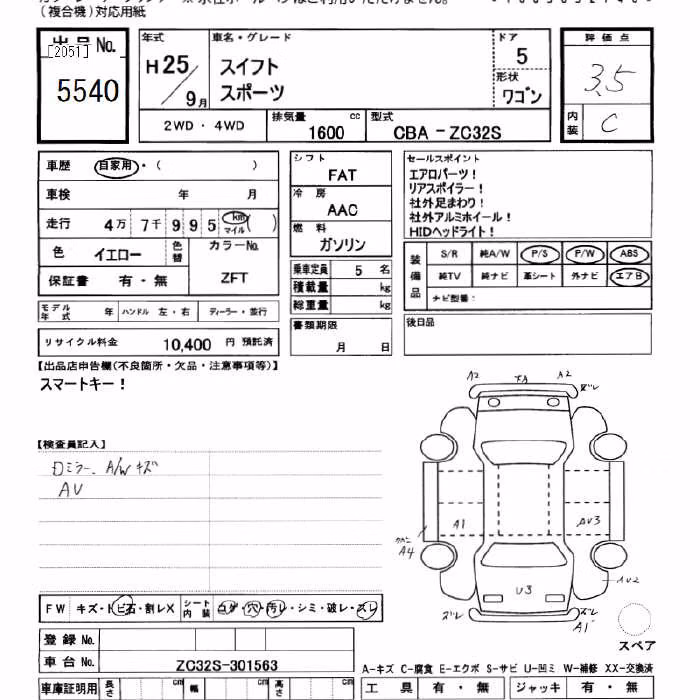 (複合機)対応用紙
出品No.
[2051]
5540
年式
H25/9月
車名・グレード
スイフト
スポーツ
ドア
5
形状
ワゴン
2WD・4WD
排気量 cc
1600
型式
CBA-ZC32S
評価点
3.5
内装
C
車歴 自家用・( )
車検 年 月
走行 4万 7千 9 9 5 km マイル ( )
色 イエロー 色替
カラーNo.
ZFT
保証書 有・無
シフト
FAT
冷房
AAC
燃料
ガソリン
乗車定員 5 名
積載量 kg
総重量 kg
書類期限
月 日
セールスポイント
エアロパーツ!
リアスポイラー!
社外足まわり!
社外アルミホイール!
HIDヘッドライト!
装備品
S/R 純A/W P/S P/W ABS
純TV 純ナビ 革シート 外ナビ エアB
ナビ型番:
後日品
モデル年式 年 ハンドル 左・右 ディーラー・並行
リサイクル料金 10,400 円 預託済
【出品店申告欄(不良箇所・欠品・注意事項等)】
スマートキー!
【検査員記入】
ロミラー、A/Wキズ
AV
A2 FA A2 ズレ
A1 AU3
A4
U3 AU2
ズレ ズレ
A1
スペア
FW キズ・トビ石・割レX シート内装 コゲ・穴・汚レ・シミ・破レ・スレ
登録No.
車台No. ZC32S-301563
車庫証明用 長さ cm 幅 cm 高さ cm
A-キズ C-腐食 E-エクボ S-サビ U-凹ミ W-補修 XX-交換済
工具 有・無 ジャッキ 有・無